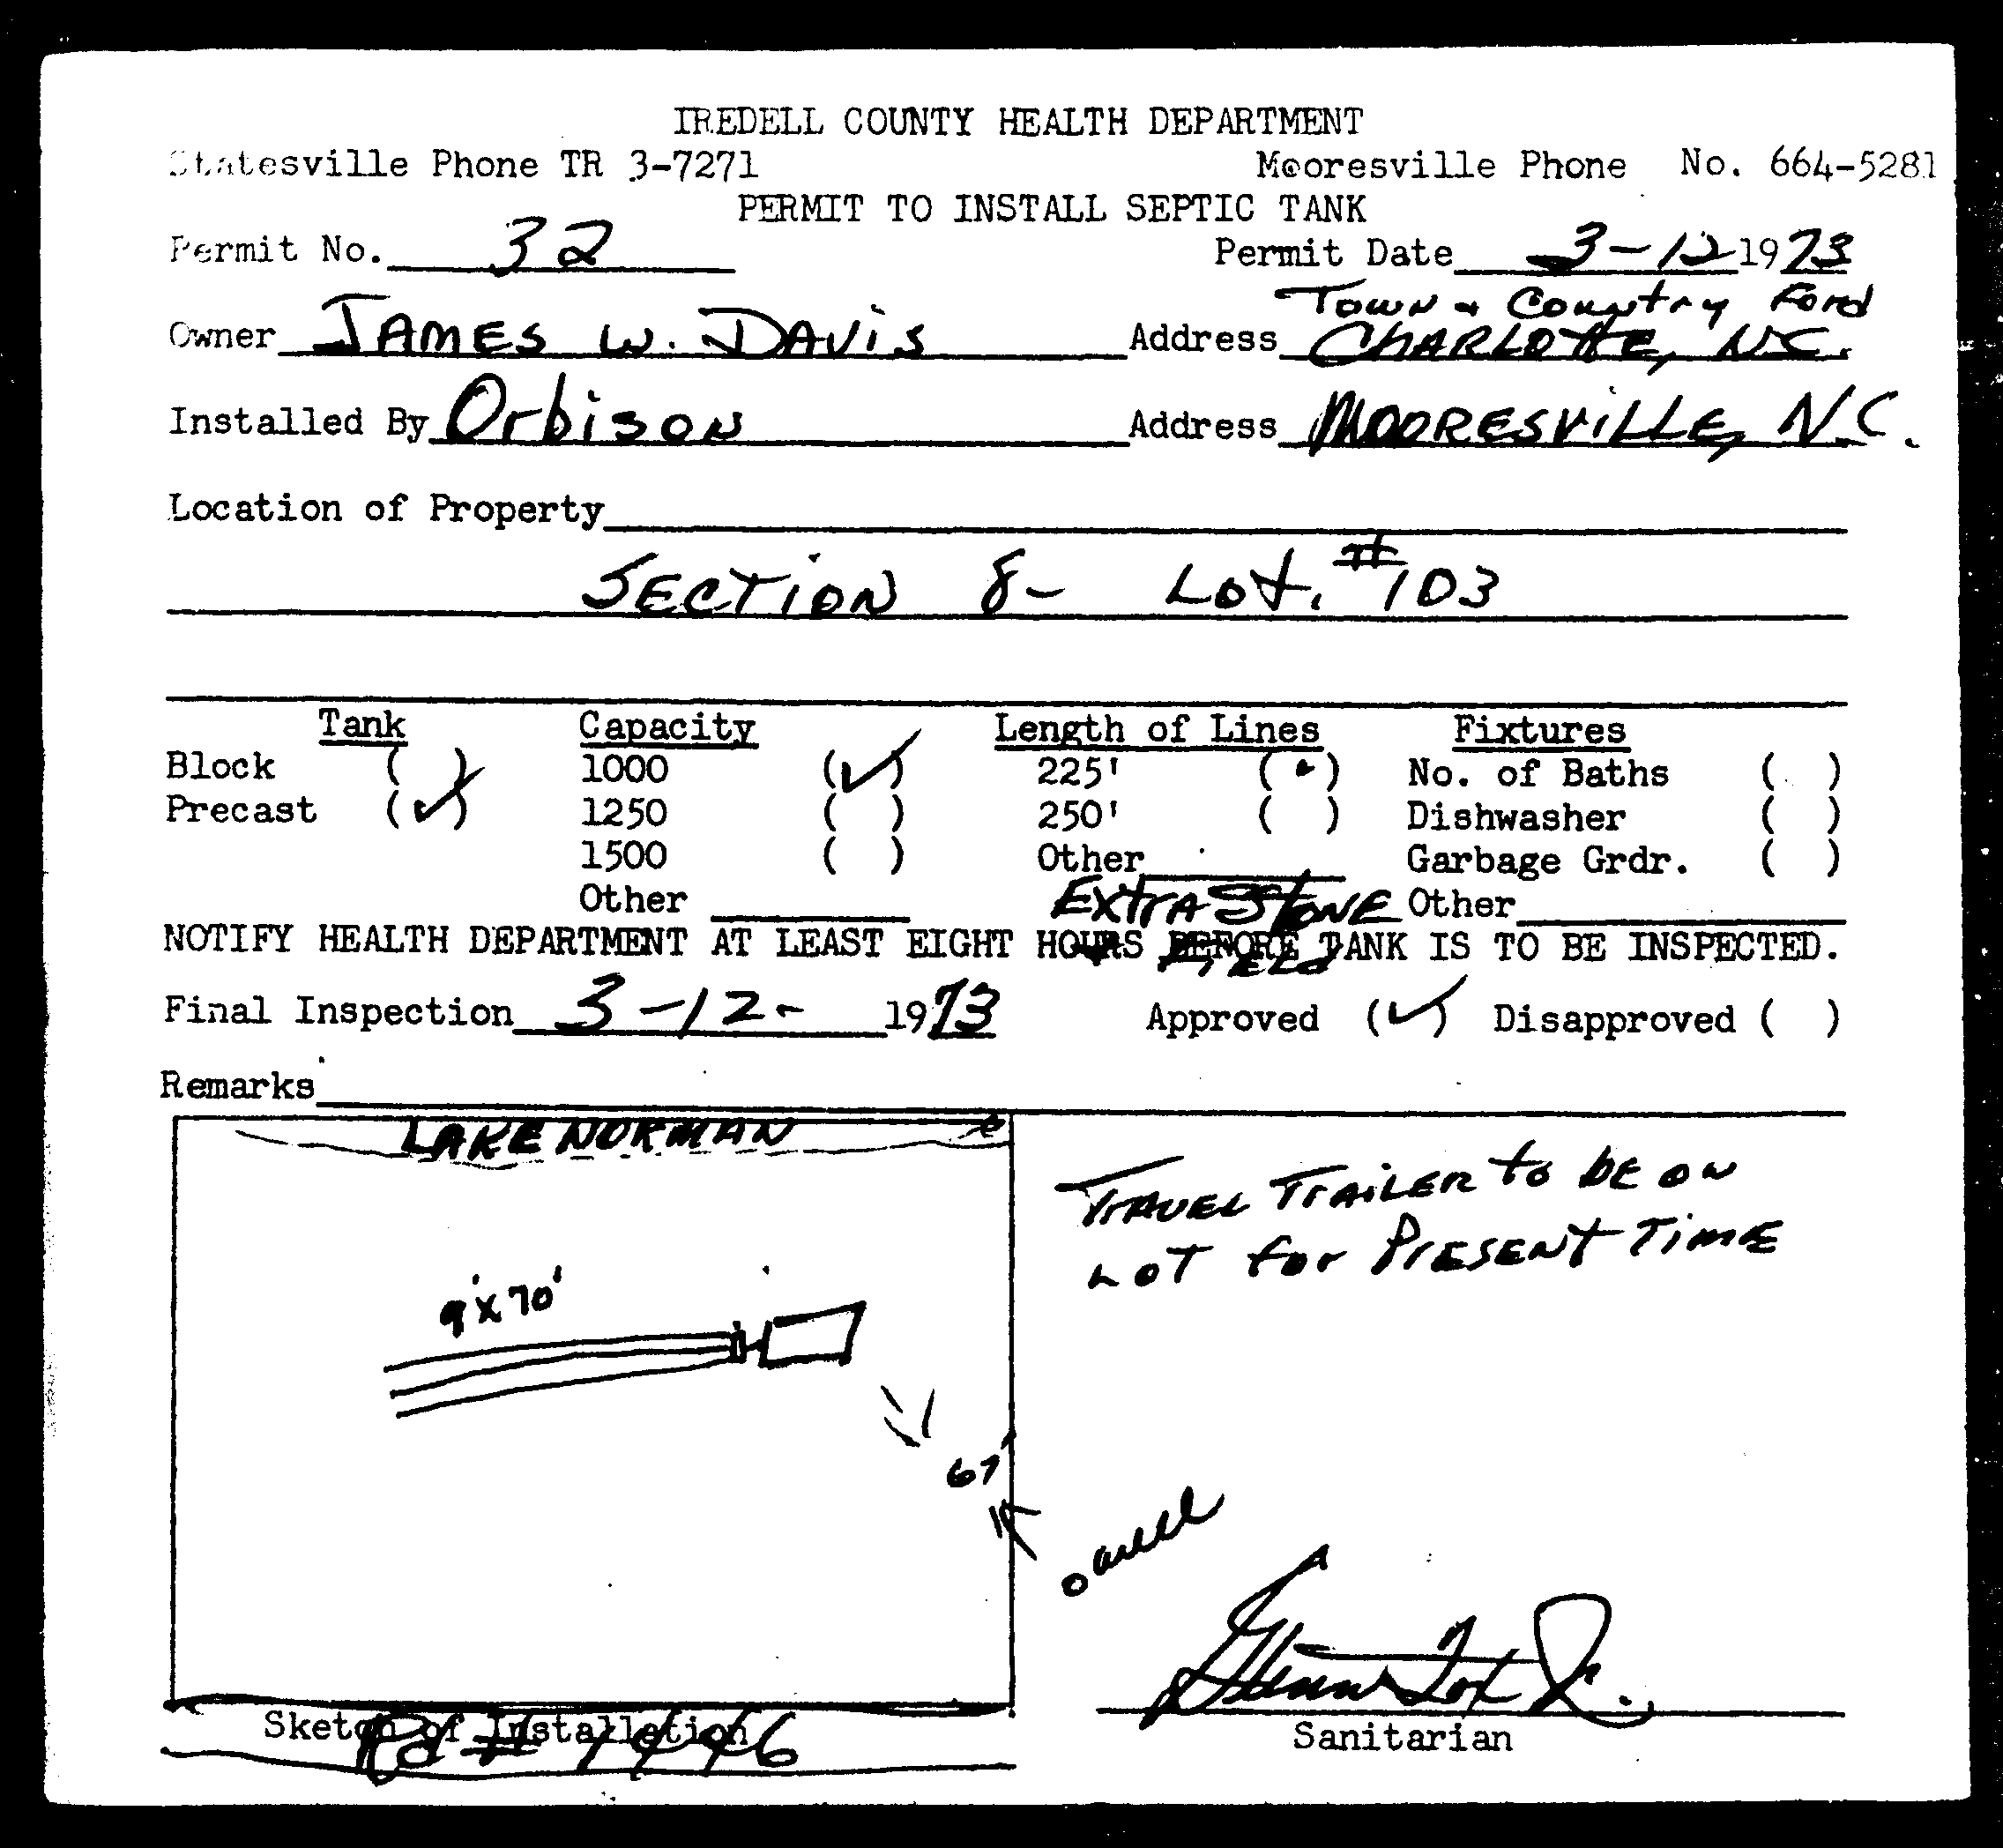 IREDELL COUNTY HEALTH DEPARTMENT
Statesville Phone TR 3-7271 Mooresville Phone No. 664-5281
PERMIT TO INSTALL SEPTIC TANK
Permit No. 32 Permit Date 3-12 1973
Town & Country Ford
Owner JAMES W. DAVIS Address CHARLOTTE, N.C.
Installed By Orbison Address MOORESVILLE, N.C.
Location of Property
SECTION 8- Lot. #103
Tank Capacity Length of Lines Fixtures
Block ( ) 1000 (✓) 225' (•) No. of Baths ( )
Precast (✓) 1250 ( ) 250' ( ) Dishwasher ( )
1500 ( ) Other Garbage Grdr. ( )
Other EXTRA STONE Other
NOTIFY HEALTH DEPARTMENT AT LEAST EIGHT HOURS BEFORE TANK IS TO BE INSPECTED.
FIELD
Final Inspection 3-12- 1973 Approved (✓) Disapproved ( )
Remarks
LAKE NORMAN
TRAVEL TRAILER to bE ON
LOT for PRESENT TIME
9'x70'
67'
o well
Glenn Fox Jr.
Sketch of Installation Sanitarian
Rd # 1446